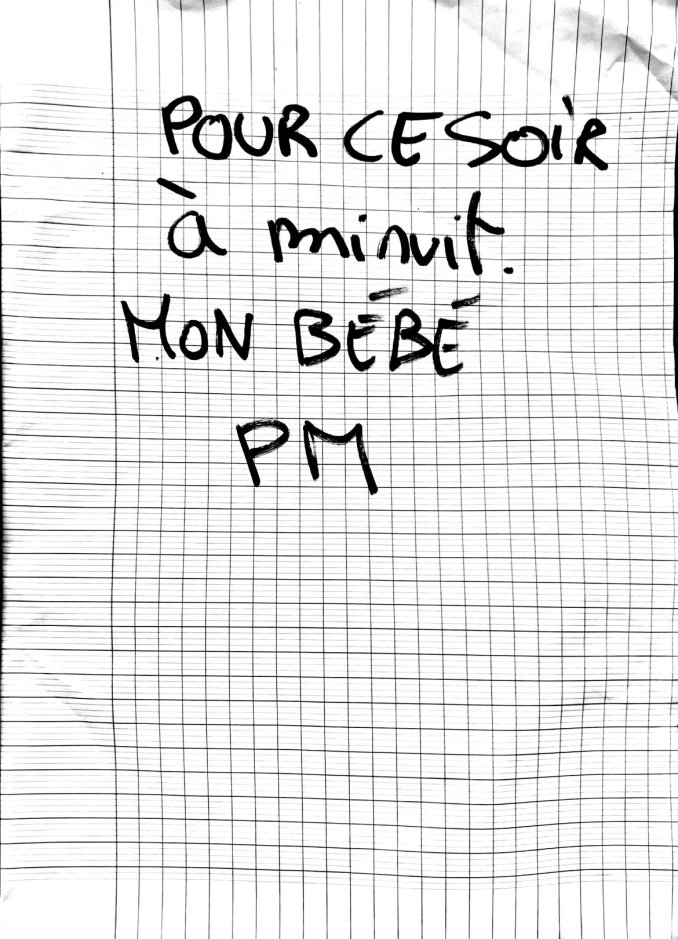 POUR CE SOIR
à minuit.
MON BÉBÉ
PM